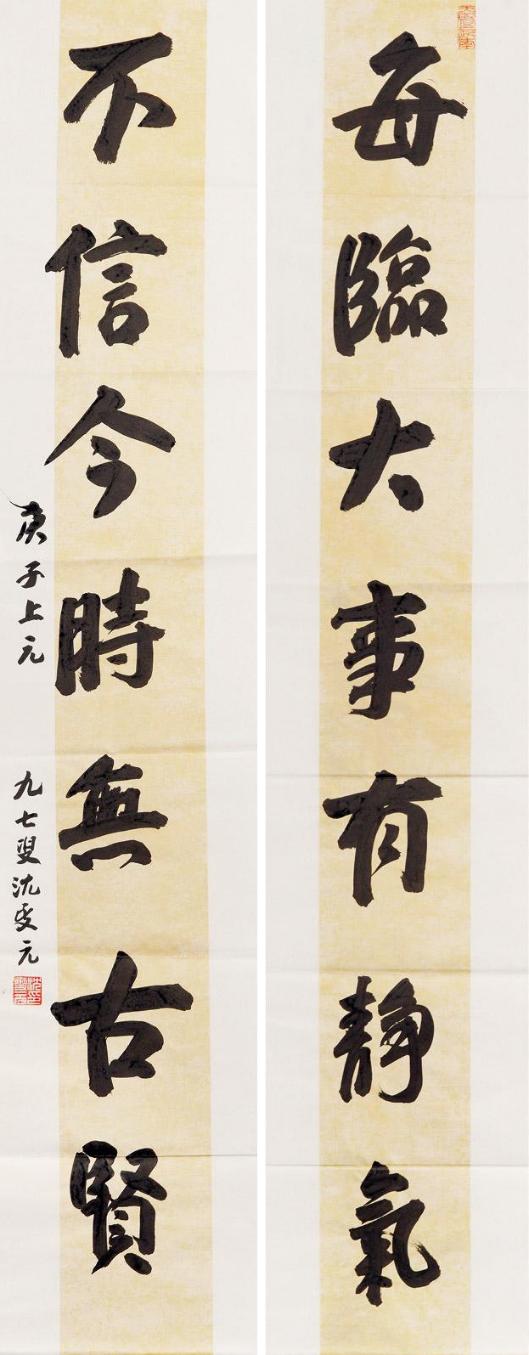 每臨大事有靜氣
不信今時無古賢
庚子上元 九七叟沈定元